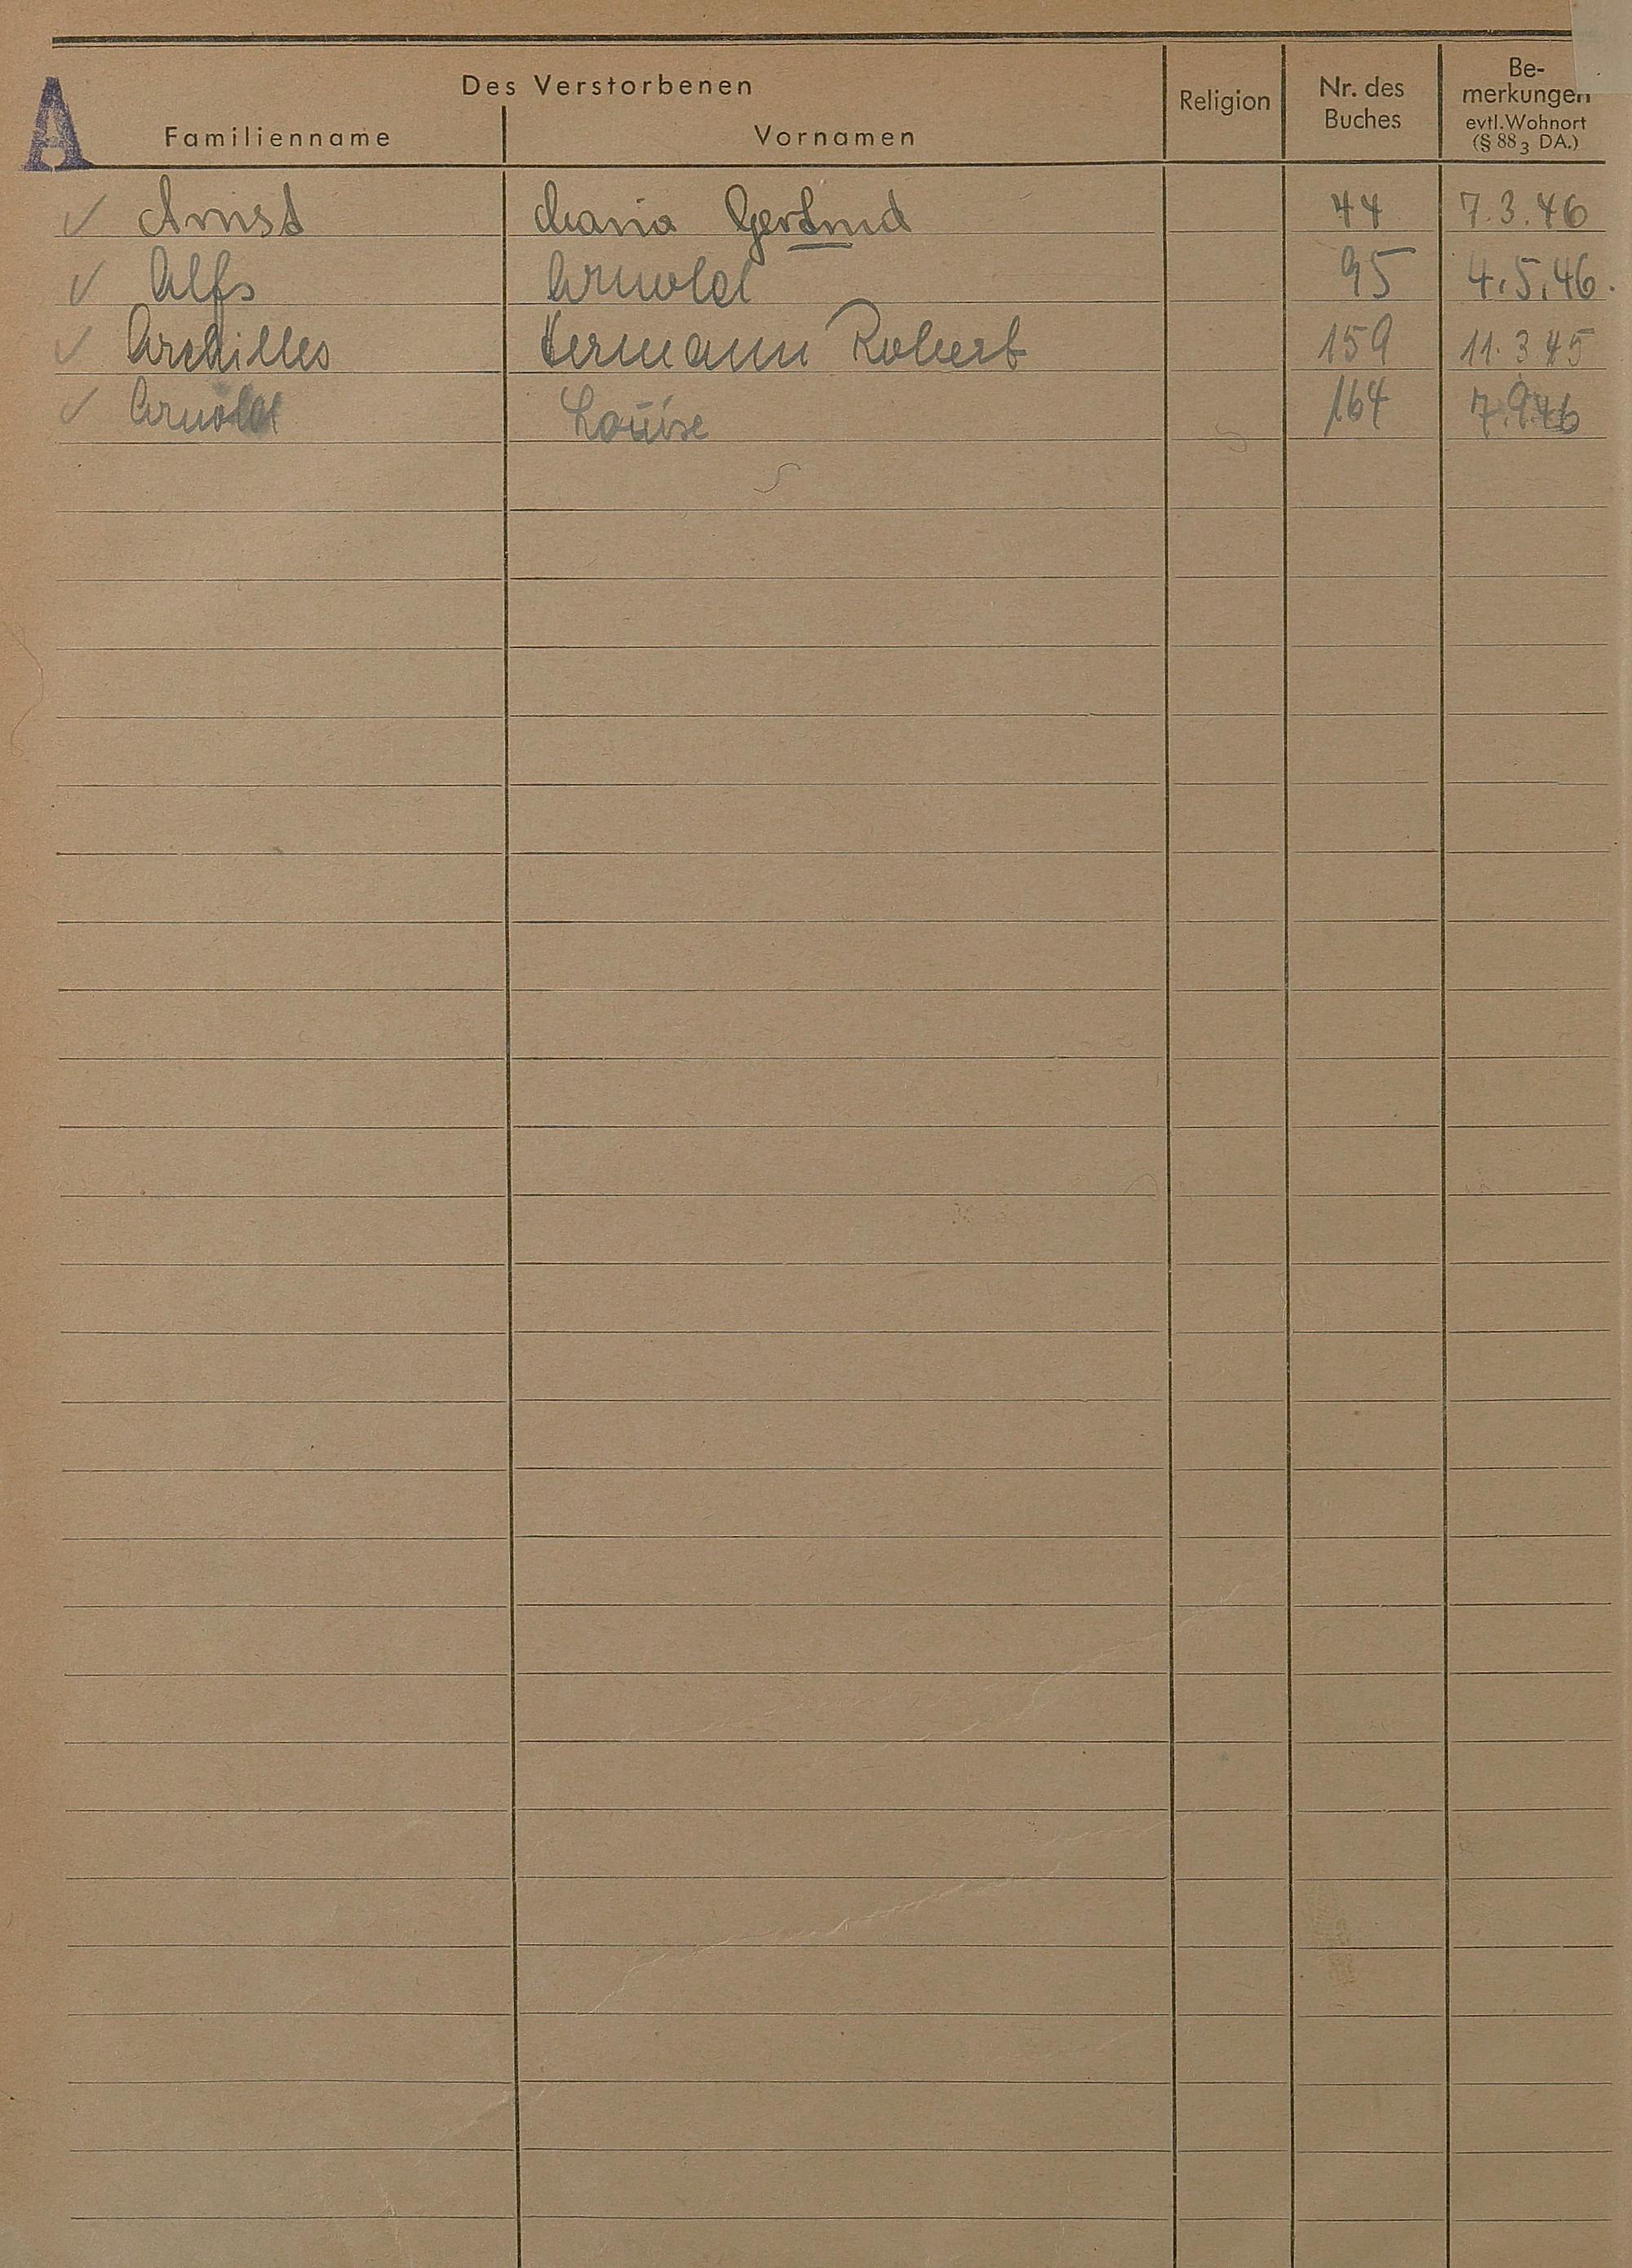 A
Des Verstorbenen
Familienname Vornamen Religion Nr. des Buches Be-merkungen evtl. Wohnort (§ 88 3 DA.)
✓ Arnst Maria Gertrud 44 7.3.46
✓ Alfs Arnold 95 4.5.46.
✓ Archilles Hermann Robert 159 11.3 45
✓ Arnold Louise 164 7.9.46